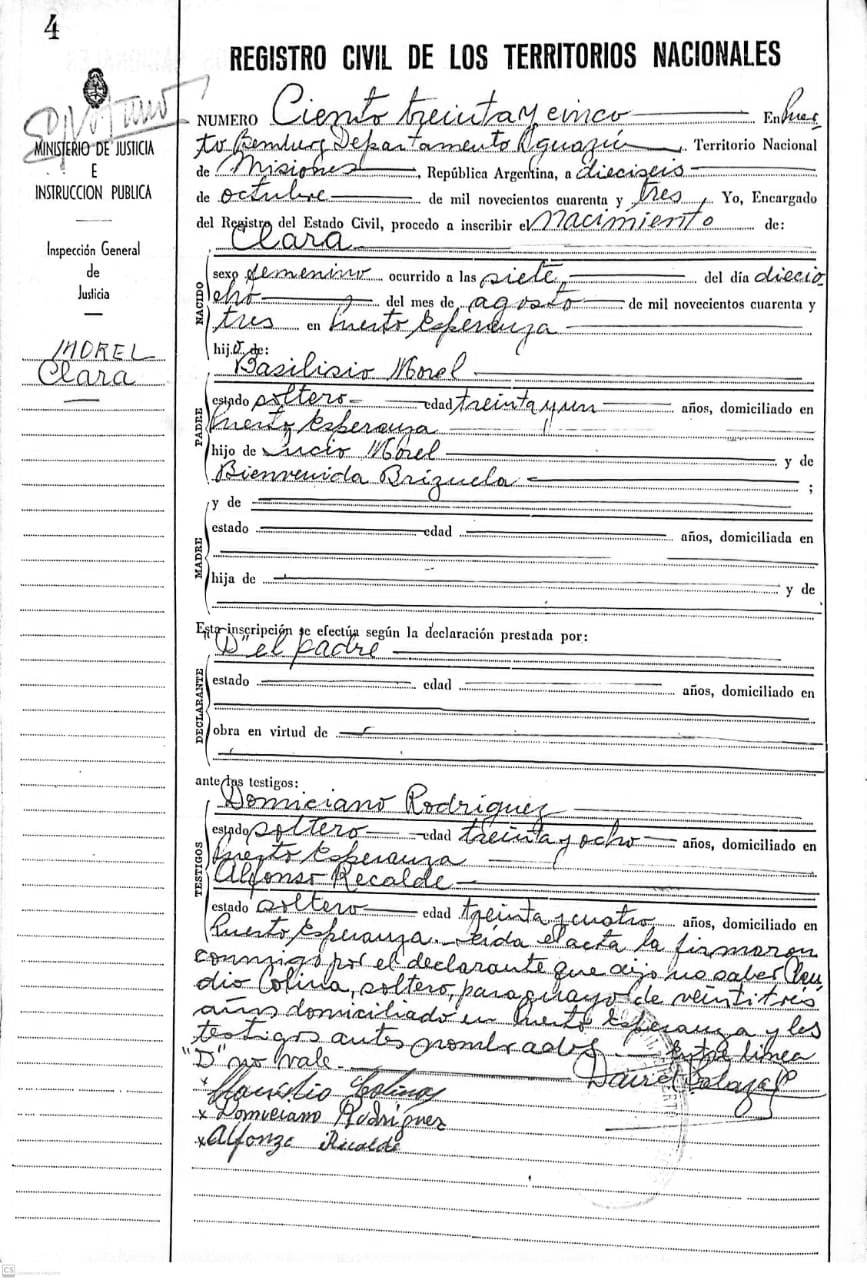 4
REGISTRO CIVIL DE LOS TERRITORIOS NACIONALES
MINISTERIO DE JUSTICIA
E
INSTRUCCION PUBLICA
Inspección General
de
Justicia
MOREL
Clara
NUMERO Ciento treinta y cinco En Puer
to Bemberg Departamento Iguazú, Territorio Nacional
de Misiones, República Argentina, a dieciseis
de octubre de mil novecientos cuarenta y tres, Yo, Encargado
del Registro del Estado Civil, procedo a inscribir el Nacimiento de:
Clara
NACIDO
sexo femenino ocurrido a las siete, del día diecio
cho del mes de agosto de mil novecientos cuarenta y
tres en Puerto Esperanza
hija de:
Basilisio Morel
PADRE
estado soltero edad treinta y un años, domiciliado en
Puerto Esperanza
hijo de Lucio Morel y de
Bienvenida Brizuela ;
MADRE
y de
estado edad años, domiciliada en
hija de y de
Esta inscripción se efectúa según la declaración prestada por:
"D" el padre
DECLARANTE
estado edad años, domiciliado en
obra en virtud de
ante los testigos:
Domiciano Rodriguez
TESTIGOS
estado soltero edad treinta y ocho años, domiciliado en
Puerto Esperanza
Alfonso Recalde
estado soltero edad treinta y cuatro años, domiciliado en
Puerto Esperanza. Leida el acta la firmaron
conmigo por el declarante que dijo no saber Clau
dio Colina, soltero, paraguayo de veintitrés
años domiciliado en Puerto Esperanza y los
testigos antes nombrados. Entre linea
"D" no vale.
x Colina
x Domiciano Rodriguez
x Alfonzo Ricalde
CS